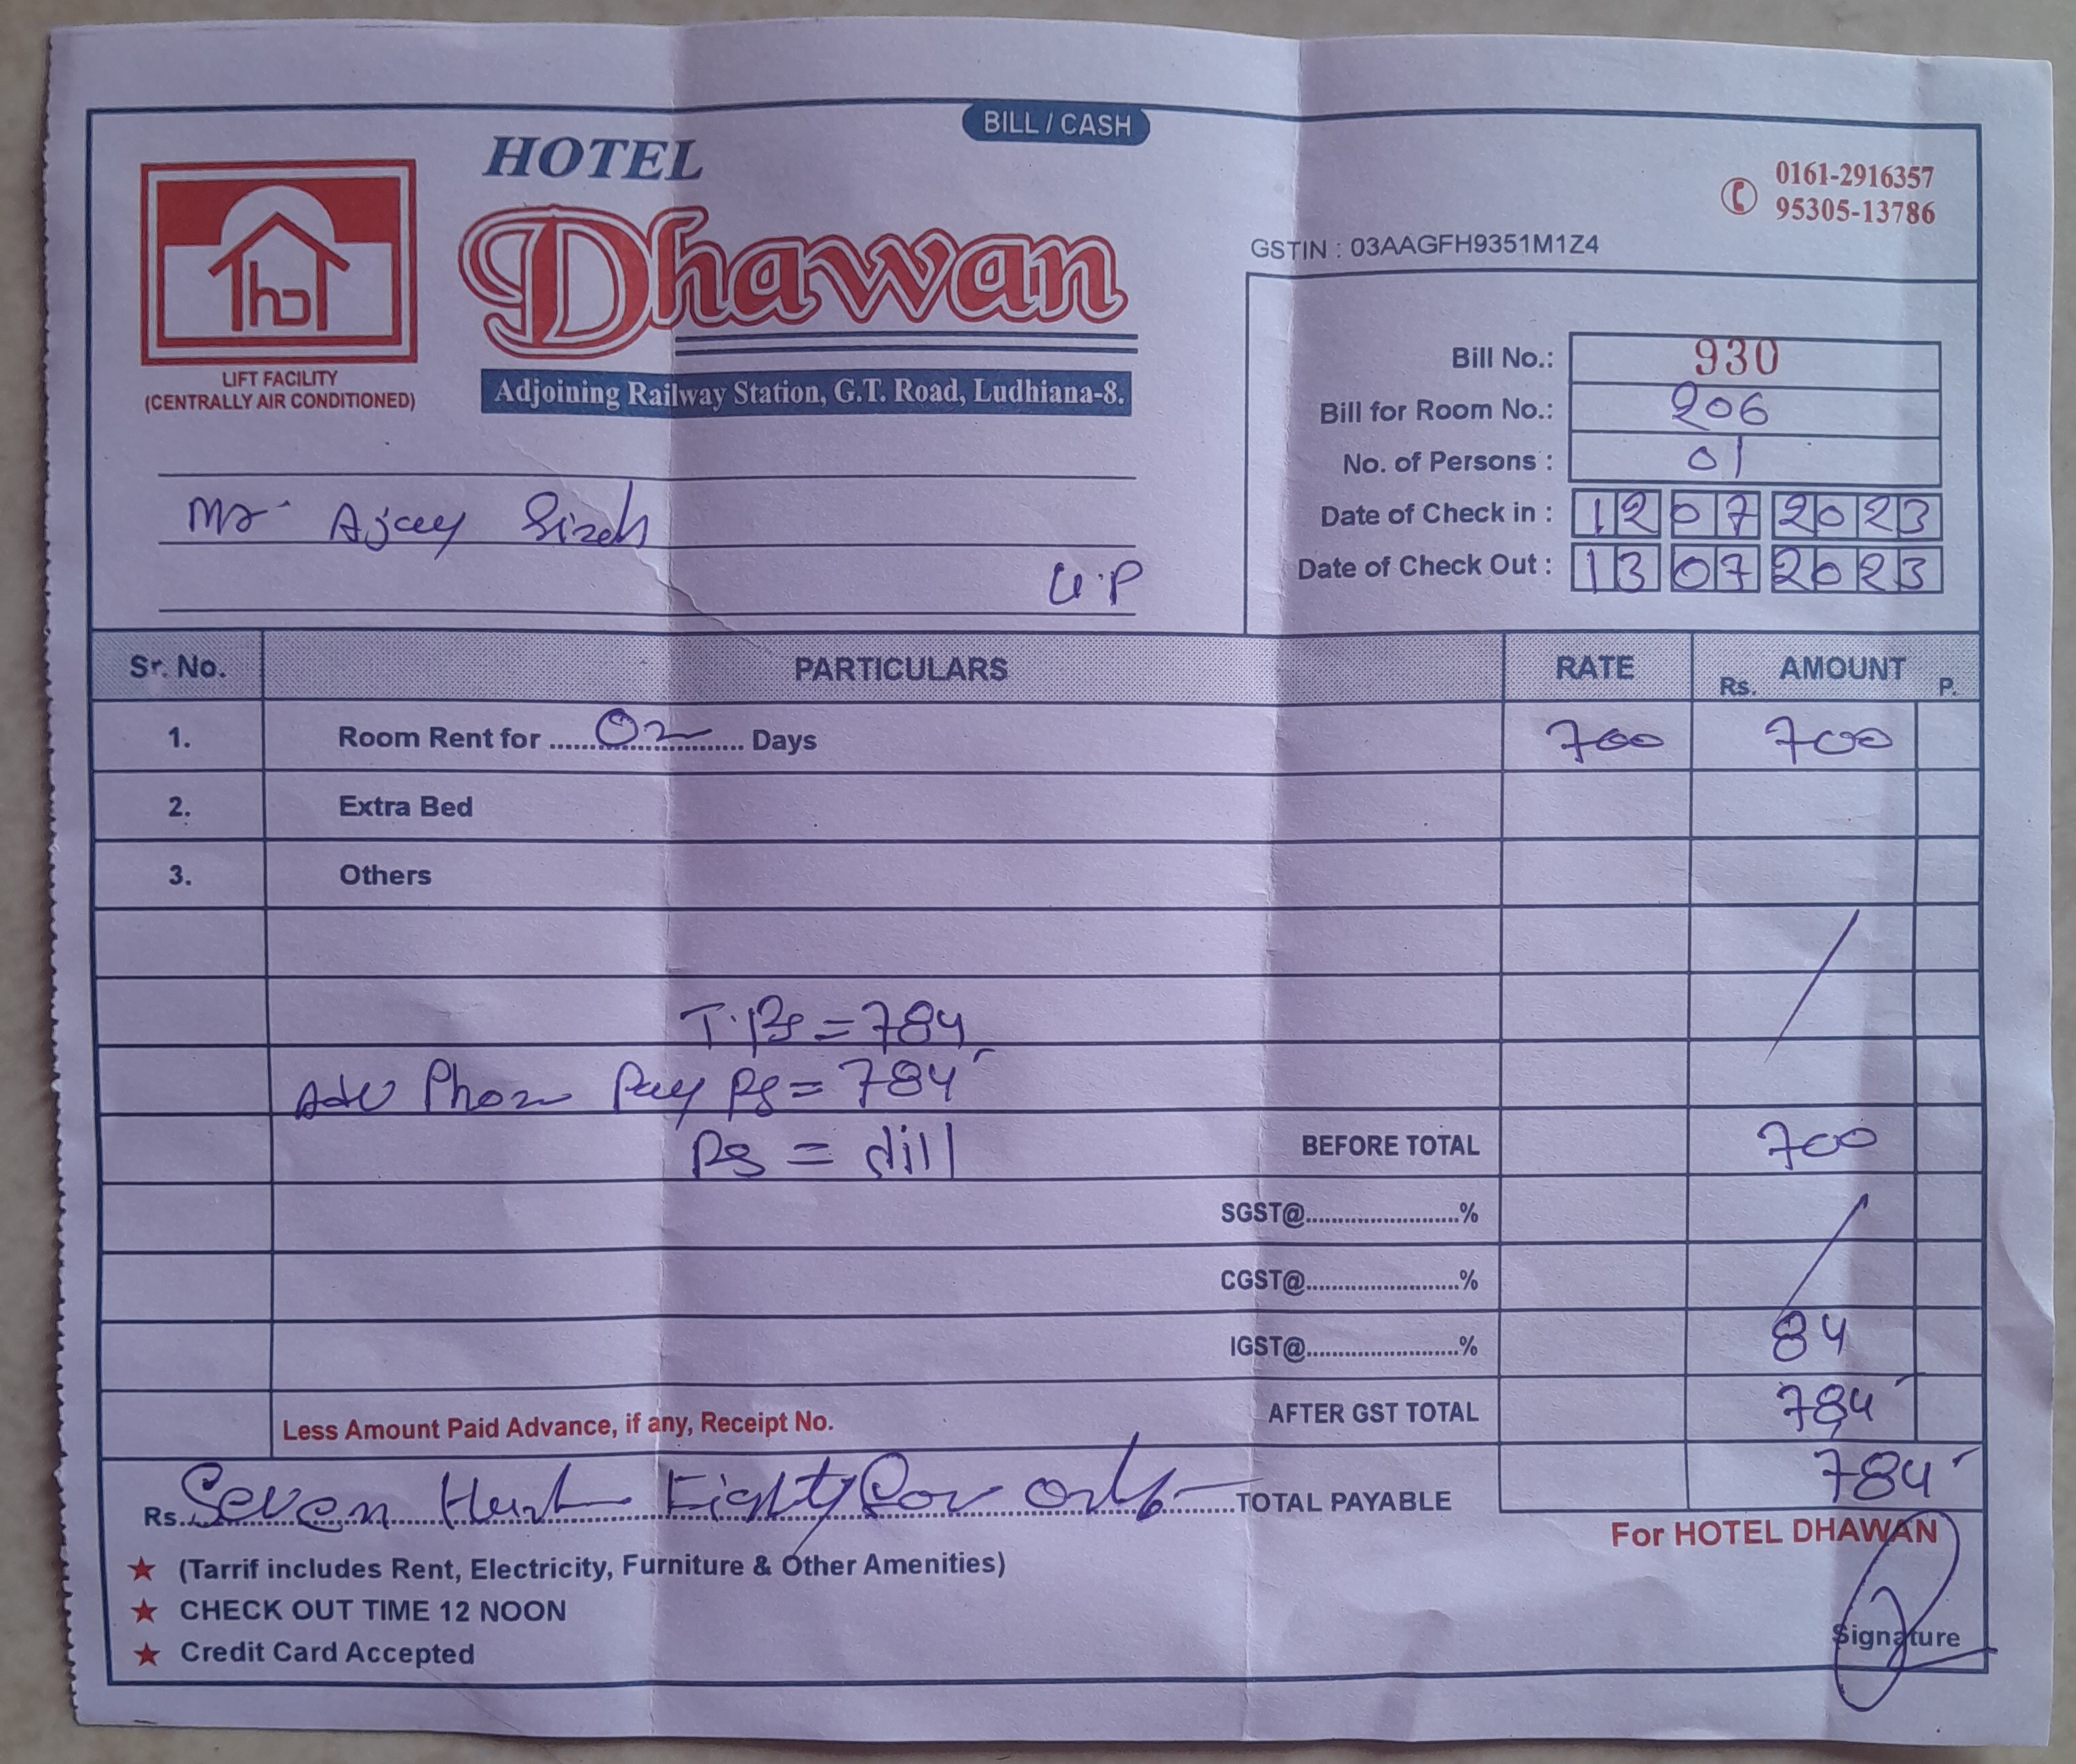 BILL / CASH
HOTEL
Dhawan
Adjoining Railway Station, G.T. Road, Ludhiana-8.
hd
LIFT FACILITY
(CENTRALLY AIR CONDITIONED)
0161-2916357
95305-13786
GSTIN : 03AAGFH9351M1Z4
Bill No.: 930
Bill for Room No.: 206
No. of Persons : 01
Date of Check in : 12 07 2023
Date of Check Out : 13 07 2023
Mr. Ajay
U.P
Sr. No. PARTICULARS RATE AMOUNT
Rs. P.
1. Room Rent for ........02........ Days 700 700
2. Extra Bed
3. Others
T. Rs = 784
Adv Phone Pay Rs = 784
Rs = dill
BEFORE TOTAL 700
SGST@........................%
CGST@........................%
IGST@........................% 84
AFTER GST TOTAL 784
Less Amount Paid Advance, if any, Receipt No.
Rs. Seven Eighty only TOTAL PAYABLE 784
For HOTEL DHAWAN
★ (Tarrif includes Rent, Electricity, Furniture & Other Amenities)
★ CHECK OUT TIME 12 NOON
★ Credit Card Accepted
Signature